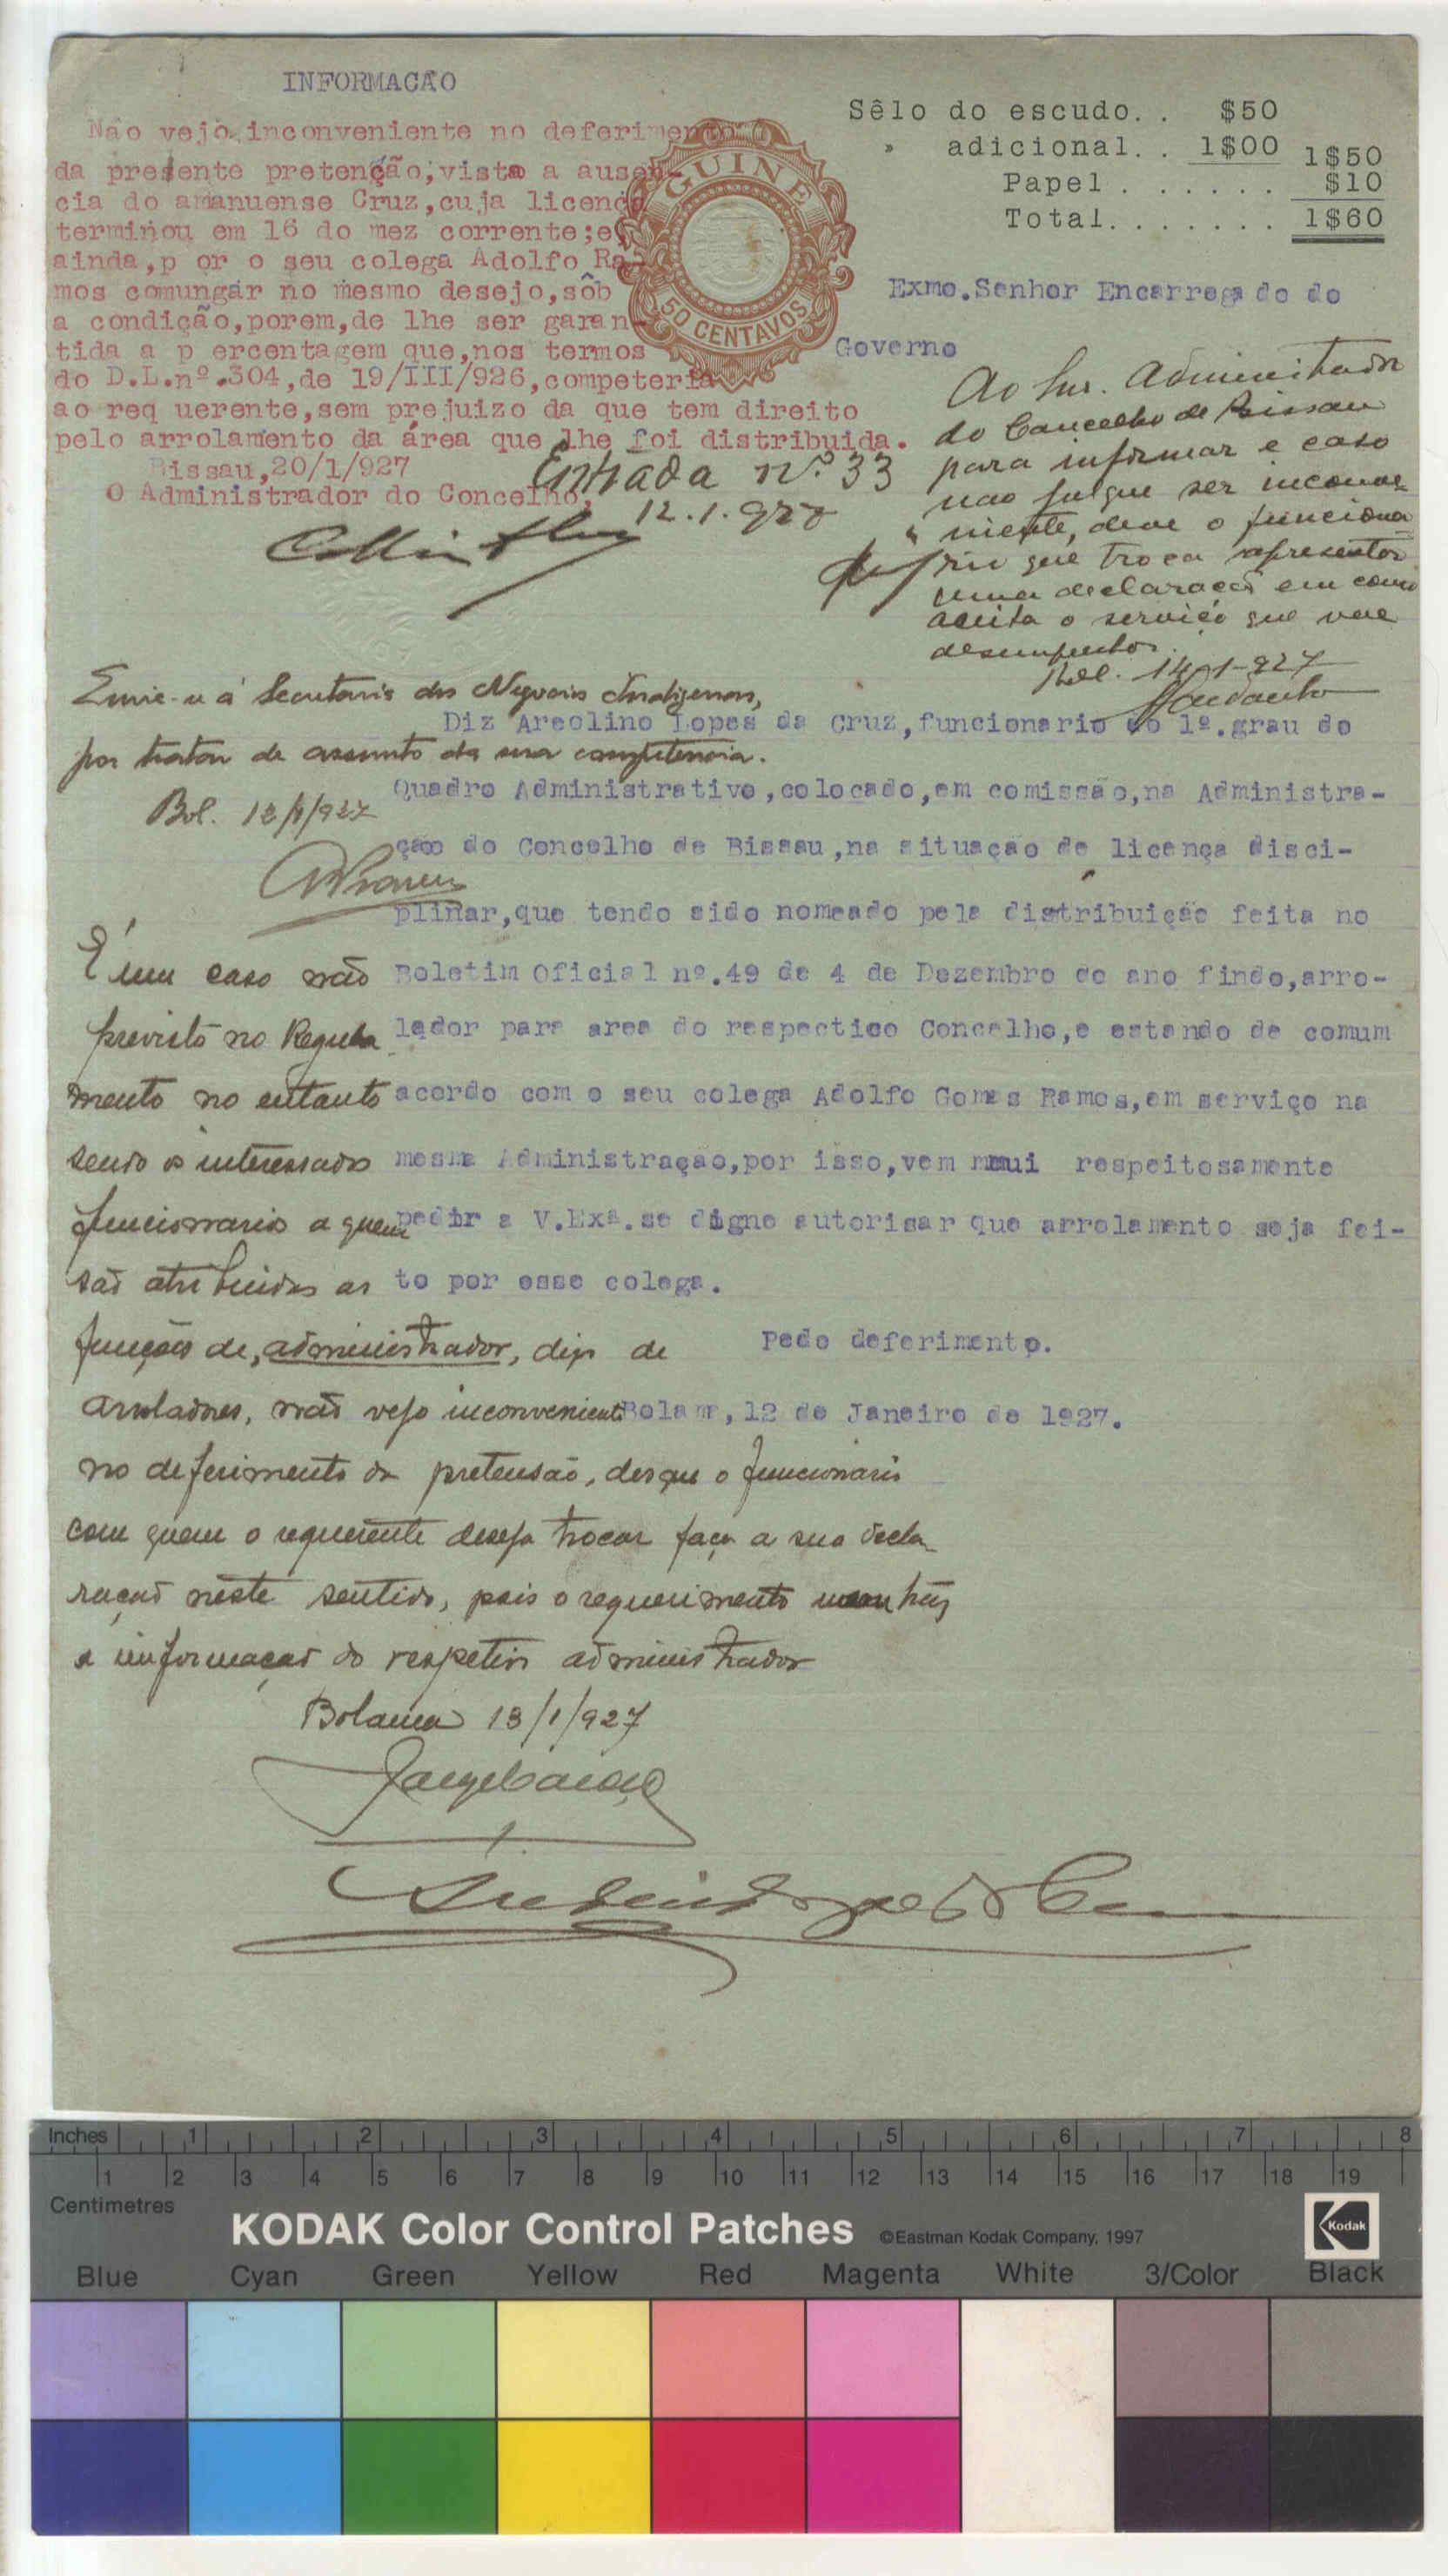 INFORMACÃO
Não vejo inconveniente no deferimento
da presente pretenção, vista a ausen-
cia do amanuense Cruz, cuja licença
terminou em 16 do mez corrente; e,
ainda, p or o seu colega Adolfo Ra-
mos comungar no mesmo desejo, sôb
a condição, porem, de lhe ser garan-
tida a p ercentagem que, nos termos
do D.L.nº.304, de 19/III/926, competeria
ao req uerente, sem prejuizo da que tem direito
pelo arrolamento da área que lhe foi distribuida.
Bissau, 20/1/927
O Administrador do Concelho,
GUINÉ
50 CENTAVOS
Sêlo do escudo. . $50
" adicional. . 1$00 1$50
Papel . . . . . . $10
Total. . . . . . . 1$60
Exmo. Senhor Encarregado do
Governo
Entrada nº 33
12.1.927
Ao Snr. Administrador
do Concelho de Bissau
para informar e caso
não julgue ser inconve-
niente, deve o funciona
rio que troca apresentar
uma declaração em como
aceita o serviço que vae
desempenhar.
Bol. 14-1-927
Envie-se á Secretaria dos Negocios Indigenas,
por tratar de assunto da sua competencia.
Bol. 12/1/927
Diz Areolino Lopes da Cruz, funcionario do 1º. grau do
Quadro Administrativo, colocado, em comissão, na Administra-
ção do Concelho de Bissau, na situação de licença disci-
plinar, que tendo sido nomeado pela distribuição feita no
Boletim Oficial nº.49 de 4 de Dezembro do ano findo, arro-
lador para area do respectico Concelho, e estando de comum
acordo com o seu colega Adolfo Gomes Ramos, em serviço na
mesma Administração, por isso, vem mmui respeitosamente
pedir a V.Exª. se digne autorisar que arrolamento seja fei-
to por esse colega.
Pede deferimento.
Bolama, 12 de Janeiro de 1927.
É um caso não
previsto no Regula
mento no entanto
sendo os interessados
funcionarios a quem
são atribuidas as
funções de, administrador, digo de
arroladores, não vejo inconveniente
no deferimento da pretensão, desque o funcionario
com quem o requerente deseja trocar faça a sua decla
ração neste sentido, pois o requerimento nem traz
a informação do respetivo administrador
Bolama 13/1/927
Inches 1 2 3 4 5 6 7 8
1 2 3 4 5 6 7 8 9 10 11 12 13 14 15 16 17 18 19
Centimetres
KODAK Color Control Patches ©Eastman Kodak Company, 1997 Kodak
Blue Cyan Green Yellow Red Magenta White 3/Color Black